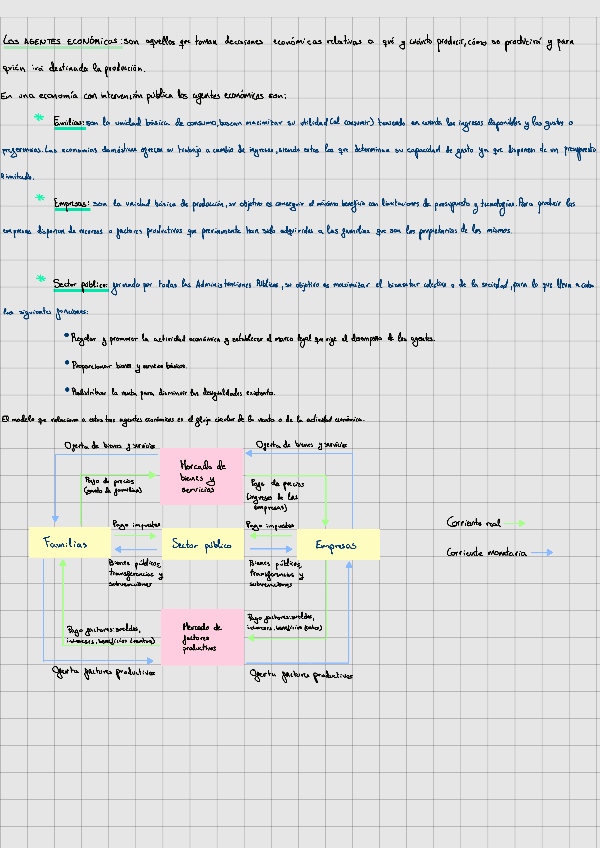 Los AGENTES ECONÓMICOS: son aquellos que toman decisiones económicas relativas a qué y cuánto producir, cómo se producirá y para
quién irá destinada la producción.
En una economía con intervención pública los agentes económicos son:
* Familias: son la unidad básica de consumo, buscan maximizar su utilidad (al consumir) teniendo en cuenta los ingresos disponibles y los gustos o
preferencias. Las economías domésticas ofrecen su trabajo a cambio de ingresos, siendo estos los que determinan su capacidad de gasto ya que disponen de un presupuesto
limitado.
* Empresas: son la unidad básica de producción, su objetivo es conseguir el máximo beneficio con limitaciones de presupuesto y tecnologías. Para producir las
empresas disponen de recursos o factores productivos que previamente han sido adquiridos a las familias que son los propietarios de los mismos.
* Sector público: formado por todas las Administraciones Públicas, su objetivo es maximizar el bienestar colectivo o de la sociedad, para lo que lleva a cabo
las siguientes funciones:
• Regular y promover la actividad económica y establecer el marco legal que rige el desempeño de los agentes.
• Proporcionar bienes y servicios básicos.
• Redistribuir la renta para disminuir las desigualdades existentes.
El modelo que relaciona a estos tres agentes económicos es el flujo circular de la renta o de la actividad económica.
Oferta de bienes y servicios
Oferta de bienes y servicios
Mercado de
bienes y
servicios
Pago de precios
(gasto de familias)
Pago de precios
(ingresos de las
empresas)
Pago impuestos
Pago impuestos
Familias
Sector público
Empresas
Corriente real
Corriente monetaria
Bienes públicos,
transferencias y
subvenciones
Bienes públicos,
transferencias y
subvenciones
Mercado de
factores
productivos
Pago factores: sueldos,
intereses, beneficios (rentas)
Pago factores: sueldos,
intereses, beneficios
Oferta factores productivos
Oferta factores productivos